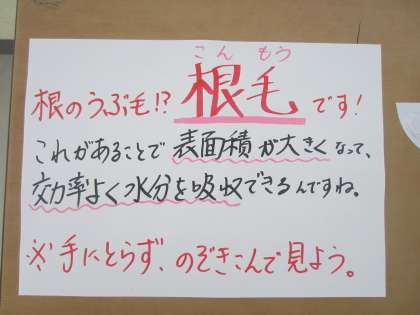 こんもう
根のうぶ毛!? 根毛です!
これがあることで表面積が大きくなって、
効率よく水分を吸収できるんですね。
※手にとらず、のぞきこんで見よう。